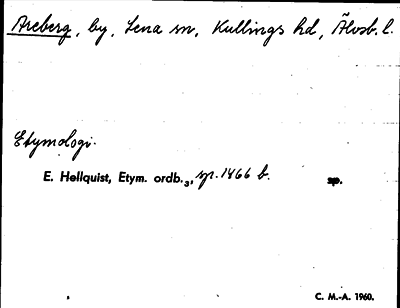 Areberg, by, Lena sn, Kullings hd, Älvsb. l.
Etymologi.
E. Hellquist, Etym. ordb.₃, sp. 1466 b. sp.
C. M.-A. 1960.